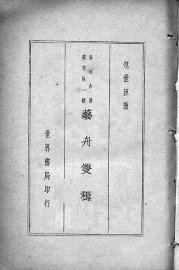 包世臣著
藝舟雙楫
世界書局印行